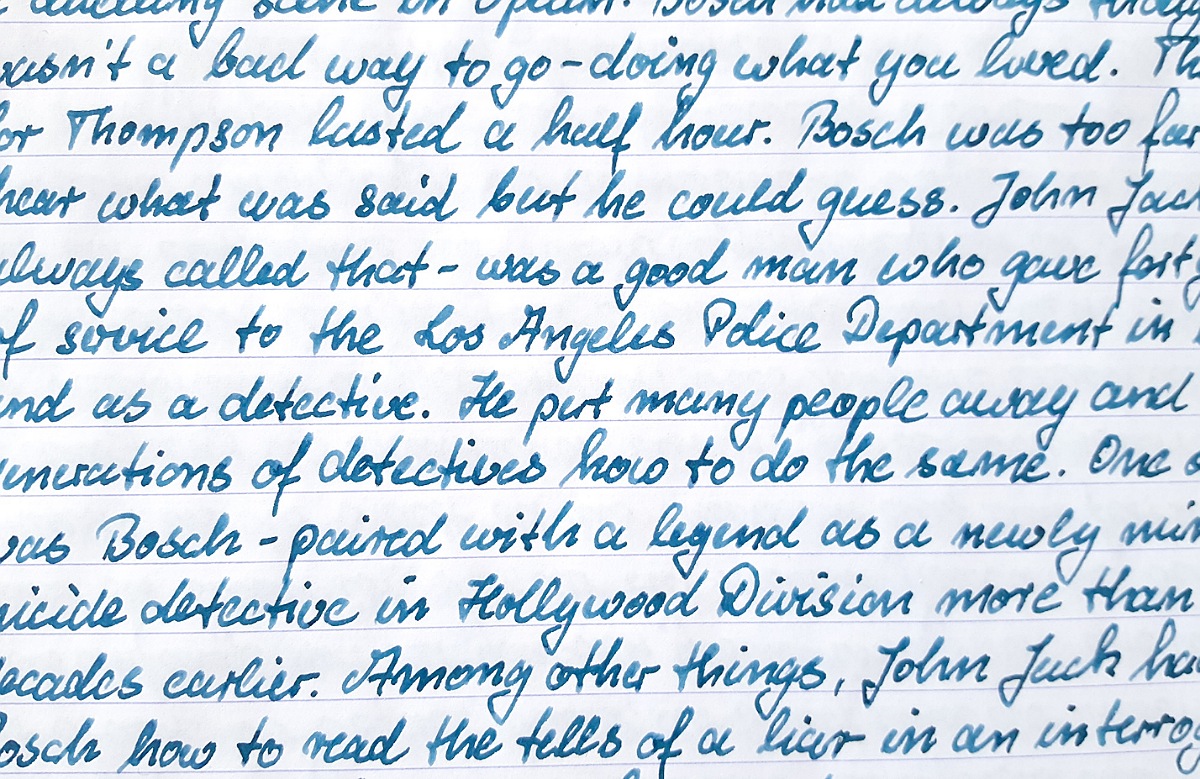 scene in Bosch had always
wasn't a bad way to go - doing what you loved. Th
or Thompson lasted a half hour. Bosch was too far
hear what was said but he could guess. John Jack
always called that - was a good man who gave forty
of service to the Los Angeles Police Department in
and as a detective. He put many people away and
enerations of detectives how to do the same. One
was Bosch - paired with a legend as a newly min
micide detective in Hollywood Division more than
decades earlier. Among other things, John Jack ha
Bosch how to read the tells of a liar in an interrog